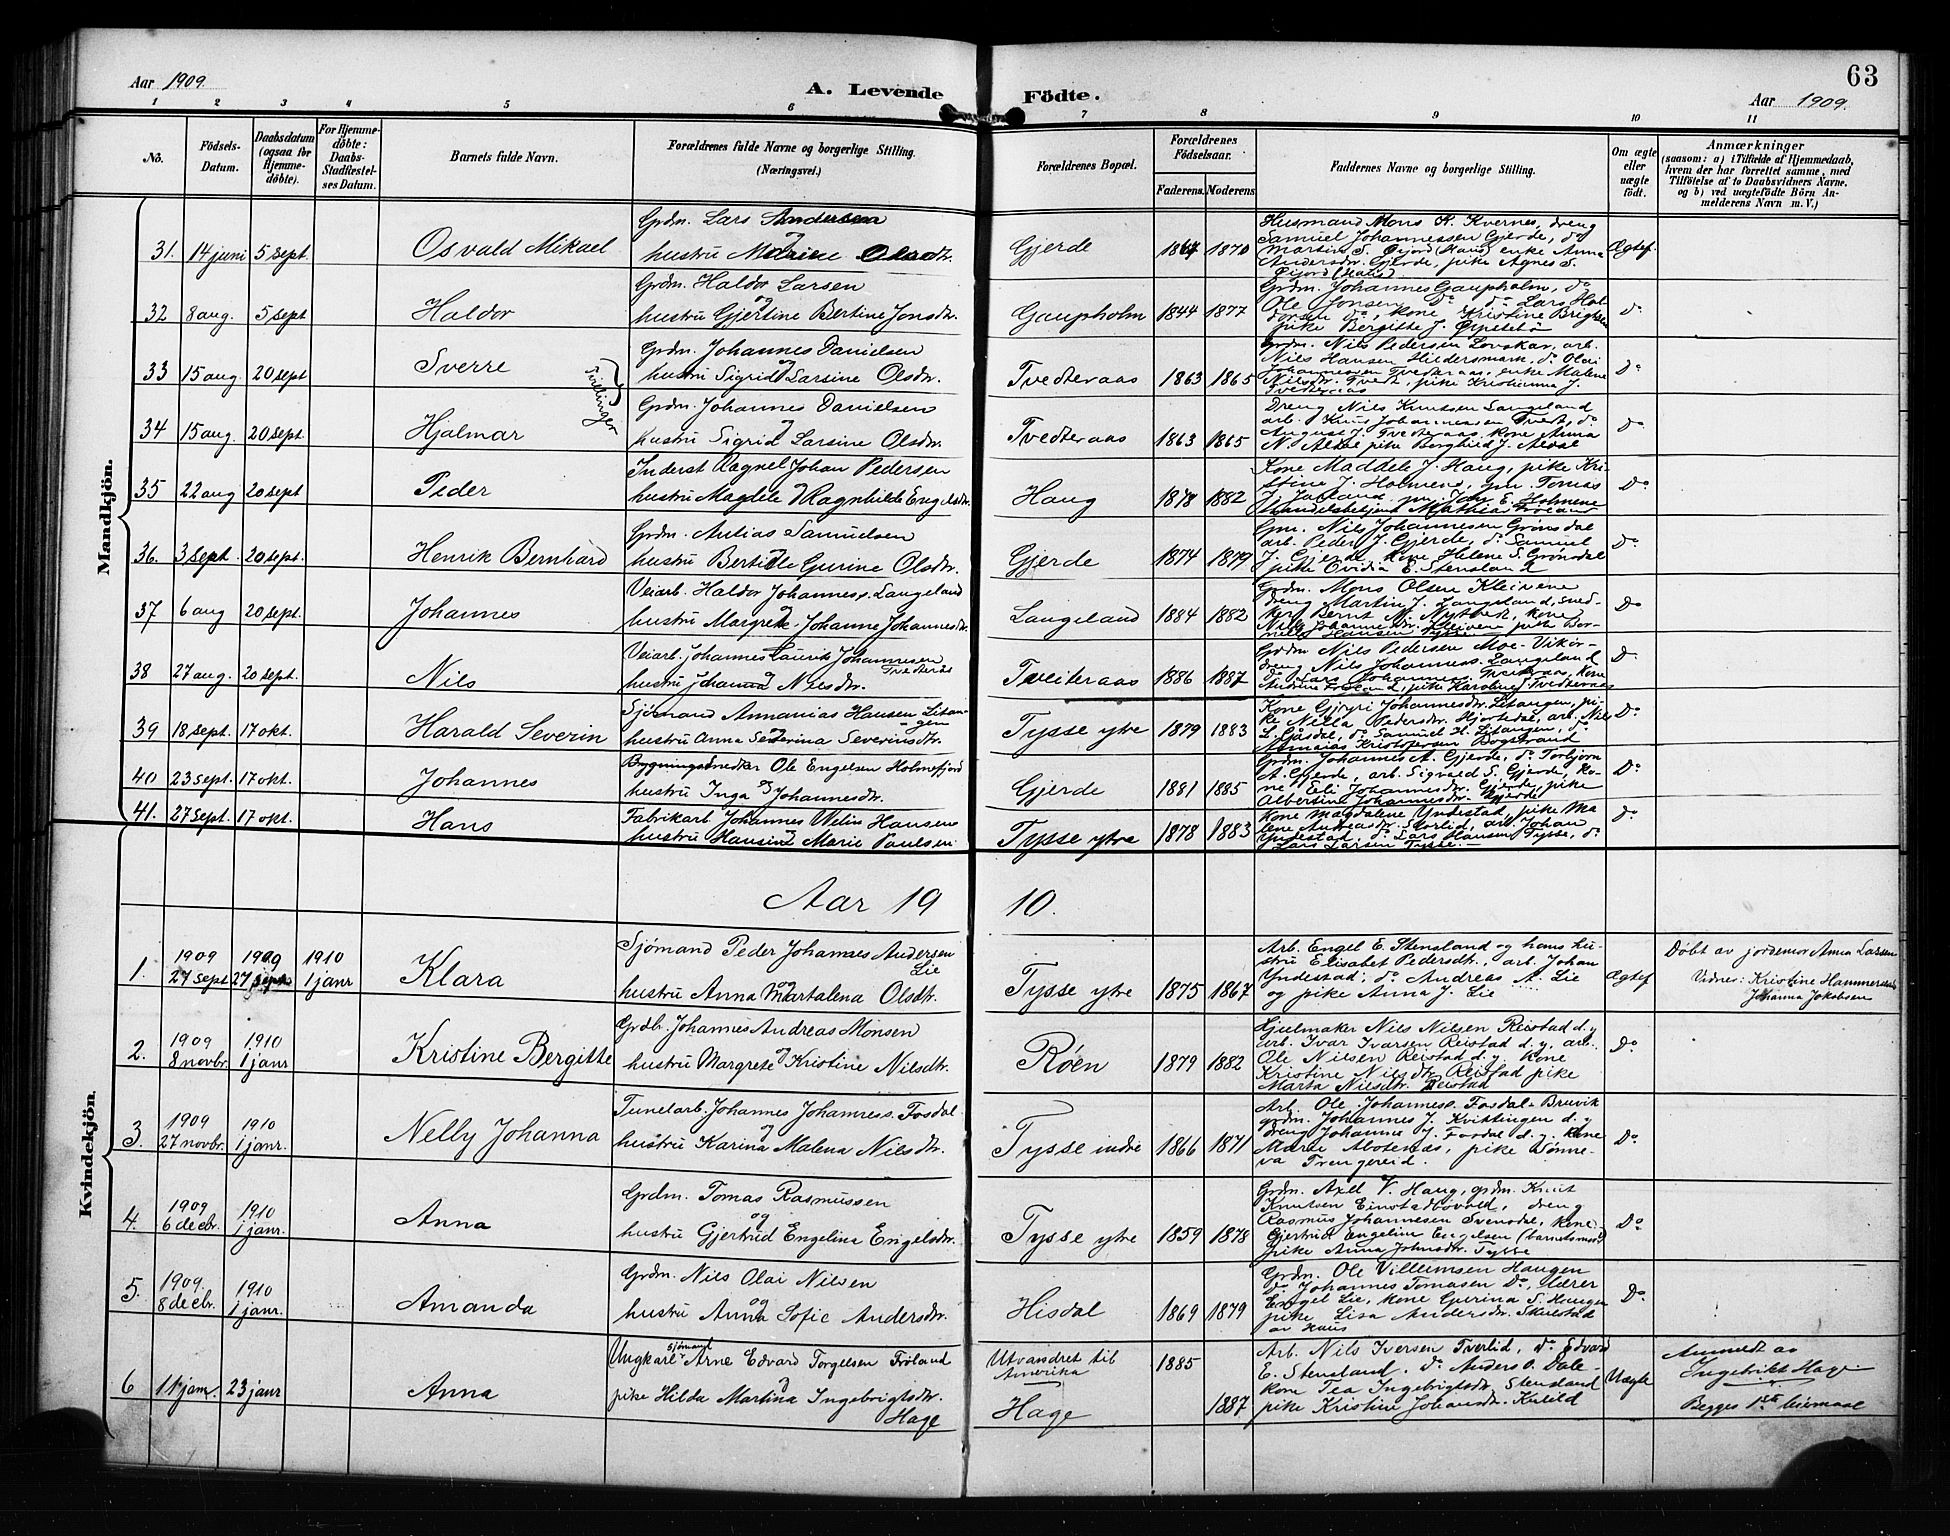 Aar 1909.
A. Levende Födte.
63
Aar 1909.
1 2 3 4 5 6 7 8 9 10 11
No.
Födsels-Datum.
Daabsdatum (ogsaa for Hjemme-döbte).
For Hjemme-döbte: Daabs-Stadfestel-ses Datum.
Barnets fulde Navn.
Forældrenes fulde Navne og borgerlige Stilling. (Næringsvei.)
Forældrenes Bopæl.
Forældrenes Födselsaar.
Faderens. Moderens
Faddernes Navne og borgerlige Stilling.
Om ægte eller uægte födt.
Anmærkninger
(saasom: a) i Tilfælde af Hjemmedaab,
hvem der har forrettet samme, med
Tilföielse af to Daabsvidners Navne.
og b) ved uægtefödte Börn An-
melderens Navn m. V.)
Mandkjön.
31. 14 juni 5 sept. Osvald Mikael
Grdm. Lars Andersen
og
hustru Marine Olsdtr.
Gjerde 1867 1870
Husmand Mons K. Kvernes, dreng
Samuel Johannessen Gjerde, do
Andersdr. Gjerde, pike Agnes S.
Ægtef.
32 8 aug. 5 sept Haldor
Grdm. Haldor Larsen
og
hustru Gjertine Bertine Jonsdtr.
Gaupholm 1844 1877
Grdm. Johannes Gaupholm, do
Ole Jonsen do do Lars Hal-
dorsen do, kone Kristine
pike Bergitte J.
do
33 15 aug. 20 sept Sverre
Tvillinger
Grdm. Johannes Danielsen
hustru Sigrid Larsine Olsdtr.
Tvedteraas 1863 1865
Grdm. Nils Pedersen arb.
Nils Hansen do Olai
Johannessen Tvedteraas, enke Malene
Nilsdtr. Tvedt, pike Kristianna J.
Tvedteraas
Do
34 15 aug. 20 sept. Hjalmar
Grdm. Johannes Danielsen
hustru Sigrid Larsine Olsdtr.
Tvedteraas 1863 1865
Dreng Nils Knutsen Langeland
August J. Tvedteraas kone Anna
Do
35 22 aug 20 sept Peder
Inderst Ragnel Johan Pedersen
hustru Magdele Ragnhilde Engelsdtr.
Haug 1878 1882
Kone Maddele J. Haug, pike Kri-
stine J. Holmene, gm. Tomas
Do
36. 3 sept. 20 sept. Henrik Bernhard
Grdm. Antias Samuelsen
hustru Bertille Gurine Olsdtr.
Gjerde 1874 1879
Gm. Nils Johannesen Grönsdal
arb. Peder J. Gjerde, do Samuel
J. Gjerde, kone Helene S. Grönsdal
pike Ovidia E. Stensland
Do
37 6 aug 20 sept. Johannes
Veiarb. Haldor Johanness. Langeland
hustru Margrete Johanne Johannesdtr.
Langeland 1884 1882
Grdm. Mons Olsen Kleivene
dreng Martin J. Langeland, sned-
ker Bernt
Do
38 27 aug. 20 sept. Nils
Veiarb. Johannes Laurits Johannesen
Tveiteraas
hustru Johanna Nilsdtr.
Tveiteraas 1886 1887
Grdm Nils Pedersen Moe-Vikör-
dreng Nils Johanness. Langeland
do Lars Johannesen Tveiteraas, kone
pike Karoline Tvedteraas
Do
39 18 sept. 17 okt. Harald Severin
Sjömand Annanias Hansen Litan-
gen
hustru Anna Severina Severinsdtr.
Tysse ytre 1879 1883
Kone Gjøri Johannesdtr. Litangen, pi-
ke Nilla Pedersdtr. Hjortedal, arb. Nils
L. Gåsdal, do Samuel H. Litangen, do
Ananias Kristofersen Bogstrand
Do
40 23 sept. 17 okt. Johannes
Bygningssnedker Ole Engelsen Holmefjord
hustru Inga Johannesdtr.
Gjerde 1881 1885
Grdm. Johannes A. Gjerde, do Torbjörn
A. Gjerde, arb. Sigvald S. Gjerde, ko-
ne Eli Johannesdtr. Gjerde, pike
Albertine Johannesdtr. Gjerde
Do
41. 27 sept. 17 okt. Hans
Fabrikarb Johannes Hansen
hustru Hansina Marie Paulsen
Tysse ytre 1878 1883
Kone Magdalene Yndestad, pike Ma-
lene Andreasdtr. Storlid, arb. Johan
Yndestad, do Lars Hansen Tysse, do
Lars Larsen Tysse
do
Aar 1910.
Kvindekjön.
1. 1909 27 sept 1909 27 sept 1910 1 janr Klara
Sjömand Peder Johannes Andersen
Lie
og
hustru Anna Martalena Olsdtr.
Tysse ytre 1875 1867
Arb. Engel E. Stensland og hans hu-
stru Elisabet Pedersdtr., arb. Johan
Yndestad, do Andreas A. Lie
og pike Anna J. Lie
Ægtef
Döbt av jordemor Anna Larsen
Vidner: Kristine Hammersland
Johanna Jakobsen
2. 1909 8 novbr. 1910 1 janr Kristine Bergitte
Grdbr. Johannes Andreas Monsen
hustru Margrete Kristine Nilsdtr.
Röen 1879 1882
Hjulmaker Nils Nilsen Reistad d.y
arb. Ivar Ivarsen Reistad d.y. arb.
Ole Nilsen Reistad d.y. kone
Kristine Nilsdtr. Reistad pike
Marta Nilsdtr. Reistad
Do
3. 1909 27 novbr. 1910 1 janr. Nelly Johanna
Tunelarb. Johannes Johanness. Fosdal
hustru Karina Malena Nilsdtr.
Tysse indre 1866 1871
Arb. Ole Johanness. Fosdal-Bruvik
grdm. Johannes J. Kvittingen d.y
dreng Johannes J. Fosdal d.y. kone
Marie pike Sönne-
va Trengereid.
Do
4. 1909 6 decbr. 1910 1 janr. Anna
Grdm. Tomas Rasmussen
og
hustru Gjertrud Engelina Engelsdtr.
Tysse ytre 1859 1878
Grdm. Axel V. Haug, grdm. Knut
Knutsen dreng
Rasmus Johannesen Svensdal, kone
Gjertrud Engeline Engelsen (barnets mor)
pike Anna Johnsdtr. Tysse
Do
5. 1909. 8 decbr. 1910 1 janr. Amanda
Grdm. Nils Olai Nilsen
og
hustru Anna Sofie Andersdtr.
Hisdal 1869 1879
Grdm. Ole Villumsen Haugen
do Johannes Tomasen Do, lærer
Engel Lie, kone Gurina S. Haugen
pike Lisa Andersdtr. Skulstad
av Haus
Do
6 11 janr. 23 janr Anna
sjömand
Ungkarl Arne Edvard Torgelsen Fröland
pike Hilda Martina Ingebrigtsdtr.
Hage
Utvandret til
Amerika 1885
Hage 1887
Arb. Nils Iversen Tverlid, do Edvard
E. Stensland, do Anders O. Dale-
kone Tea Ingebrigtsdtr. Stensland
pike Kristine Johansdtr. Kulild
Uægte
Anmeldt av
Ingebrikt Hage
Begges 1ste leiermaal